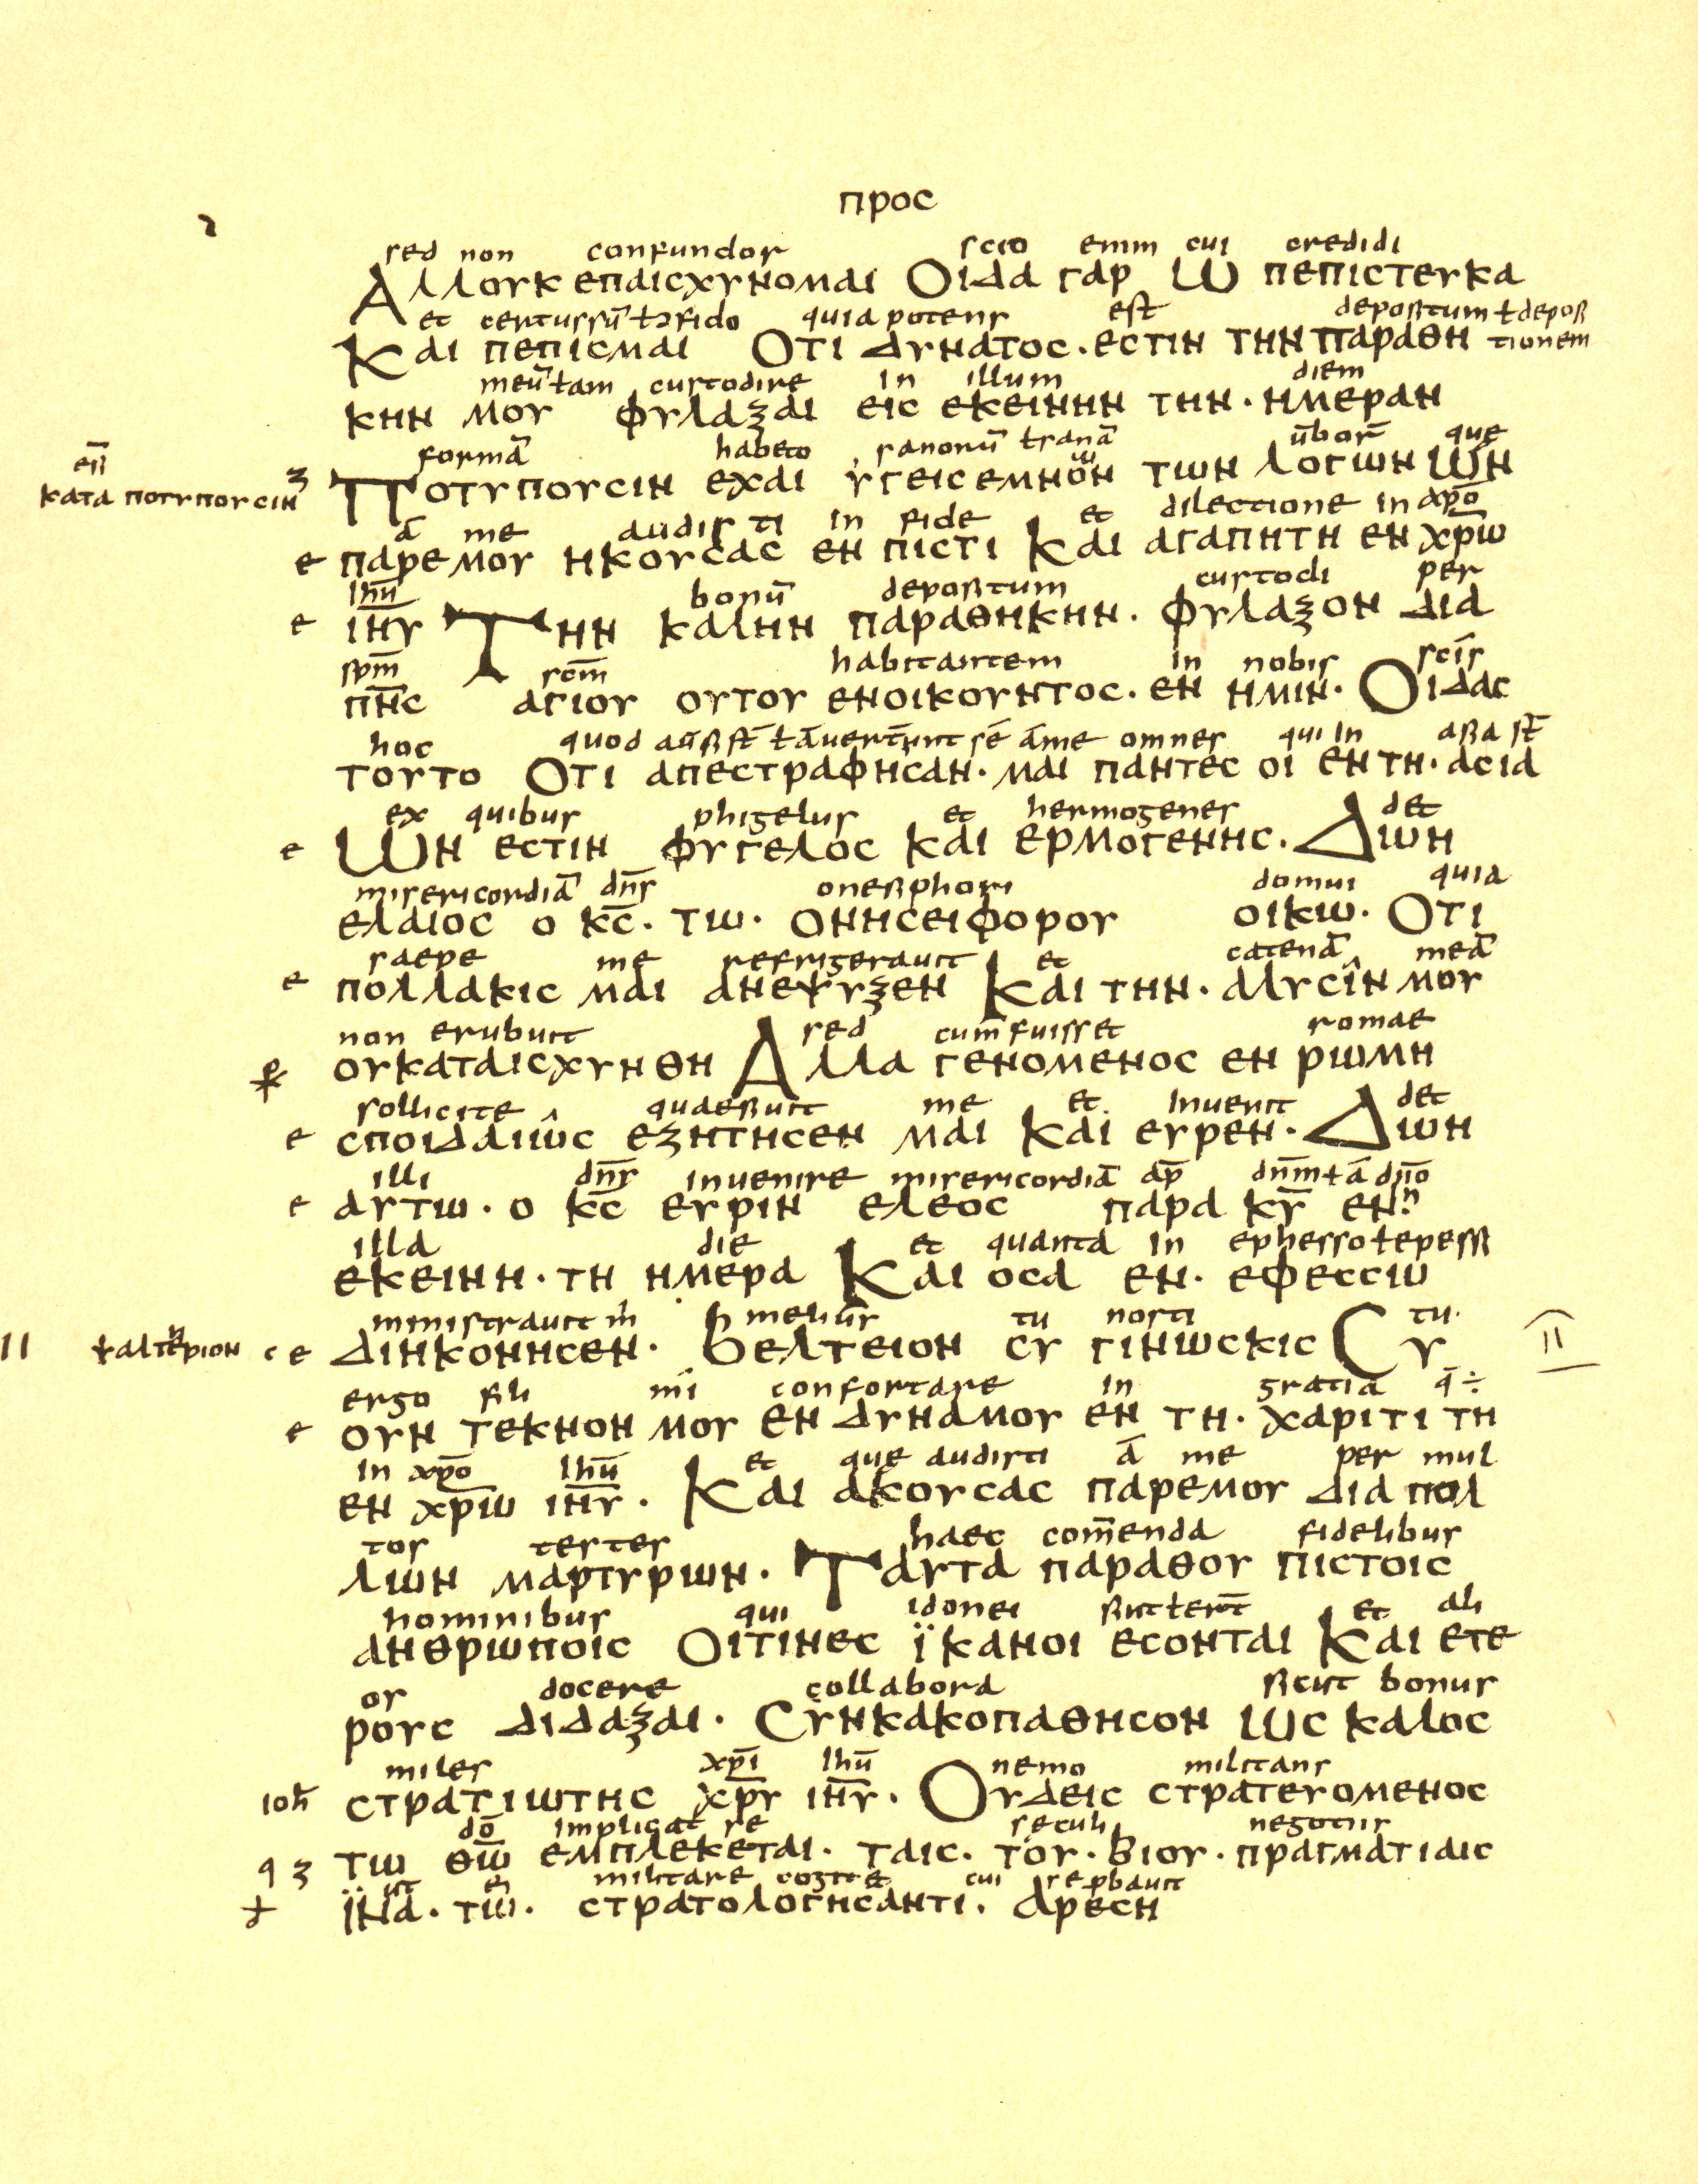 προς
sed non confundor scio enim cui credidi
Αλλουκ επαισχυνομαι Οιδα γαρ Ω πεπιστευκα
et certussū ł ɔfido quia potens est depositum ł deposi
Και πεπισμαι Οτι δυνατος · εστιν την παραθη tionem
meū ł am custodire in illum diem
κην μου φυλαξαι εις εκεινην την · ημεραν
formā habeto sanonū ł sanā ūborū que
κατα ποτυπουσιν Ποτυπουσιν εχαι υγεισεμνον των λογων Ων
ā me audisti in fide et dilectione in xp̄o
ε παρεμου ηκουσας εν πιστι Και αγαπητη εν χρ̄ω
ihū bonū depositum custodi per
ε ιη̄υ Την καλην παραθηκην · φυλαξον δια
sp̄m sc̄m habitantem in nobis scis
πν̄ς αγιου ουτου ενοικουντος · εν ημιν · Οιδας
hoc quod omnes qui in asia st̄
τουτο Οτι απεστραφησαν · μαι παντες οι εν τη · ασια
ex quibus phigelus et hermogenes det
ε Ων εστιν φυγελος και ερμογενης · Δων
misericordiā dn̄s onesiphori domui quia
ελαιος ο κ̄ς · τω · ονησειφορου οικω · Οτι
saepe me refrigerauit et catenā meā
ε πολλακις μαι ανεψυξεν Και την · αλυσιν μου
non erubuit sed cum fuisset romae
ουκαταισχυνθη Αλλα γενομενος εν ρωμη
sollicite quaesiuit me et inuenit det
ε σποιδαιως εζητησεν μαι και ευρεν · Δων
illi dn̄s inuenire misericordiā ap̄ dn̄m ł ā dn̄o
ε αυτω · ο κ̄ς ευριν ελεος παρα κ̄υ εν
illa die et quanta in ephesso ł epesi
εκεινη · τη ημερα Και οσα εν · εφεσσιω
ministrauit m̄ melius tu nosti tu
11 ς ε διηκονησεν · βελτειον συ γινωσκις Συ II
ergo fili mī confortare in gratia q̄ ÷
ε ουν τεκνον μου εν δυναμου εν τη · χαριτι τη
in xp̄o ihū et que audisti ā me per mul
εν χρ̄ω ιη̄υ · Και ακουσας παρεμου δια πολ
tos testes haec com̄enda fidelibus
λων μαρτυρων · Ταυτα παραθου πιστοις
hominibus qui idonei sint ł er̄t et ali
ανθρωποις Οιτινες ϊκανοι εσονται Και ετε
os docere collabora sicut bonus
ρους διδαξαι · Συνκακοπαθησον ως καλος
miles xp̄i ihū nemo militans
ioh̄ στρατιωτης χρ̄υ ιη̄υ · Ουδεις στρατευομενος
dō implicat se seculi negotiis
τω θ̄ω εμπλεκεται · ταις · του · βιου · πραγματιαις
ut ei militare cogite cui se p̄bauit
ϊνα · τω · στρατολογησαντι · αρεση